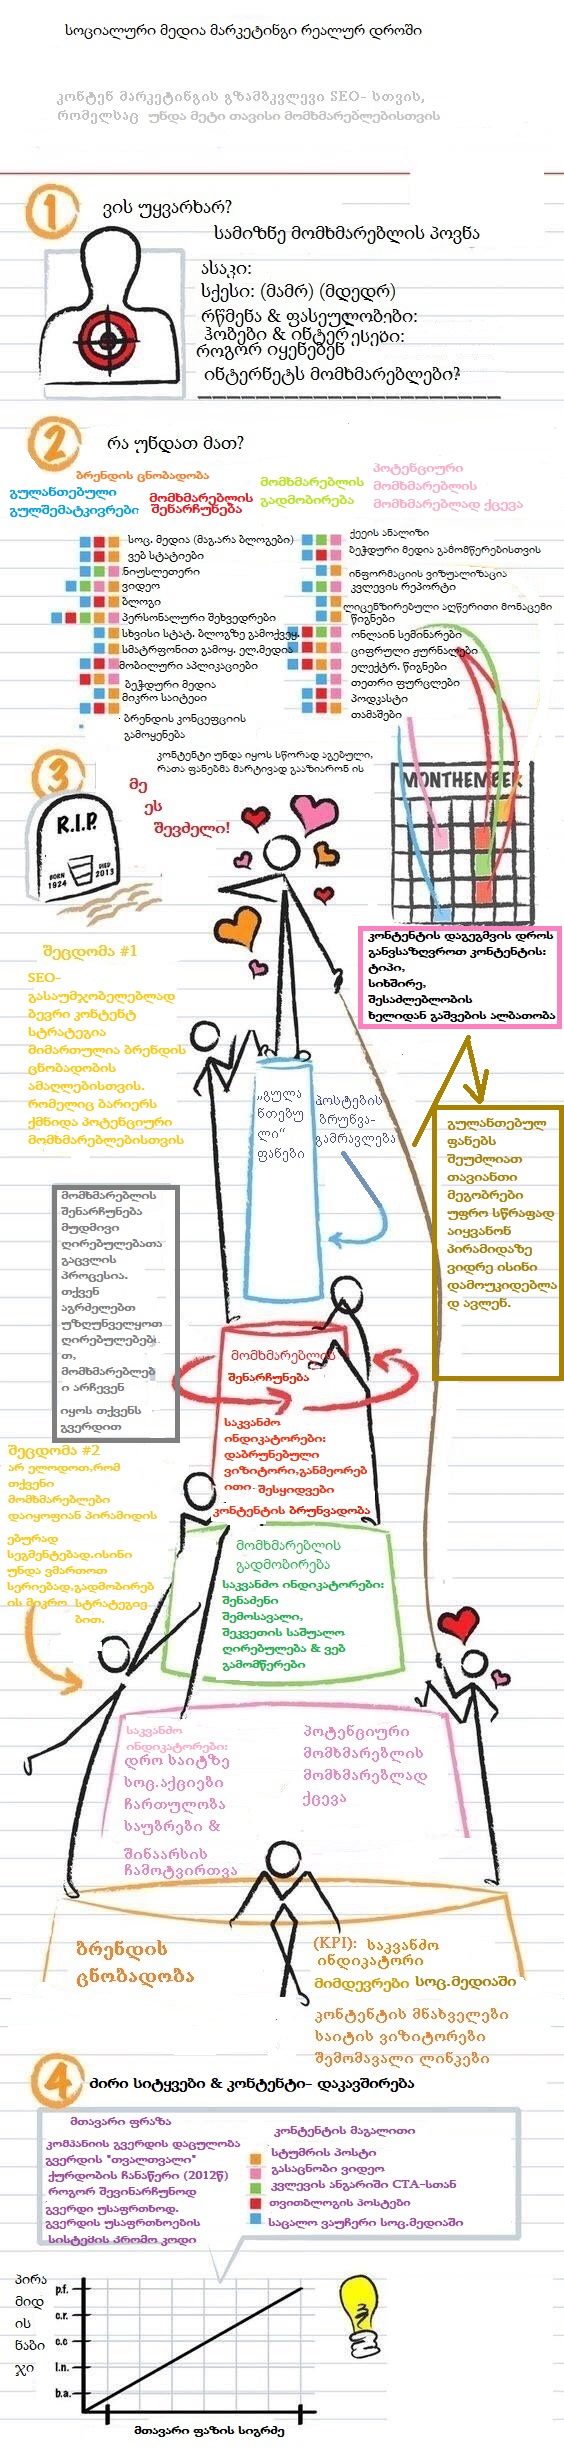 სოციალური მედია მარკეტინგი რეალურ დროში
კონტენ მარკეტინგის გზამბკვლევი SEO- სთვის,
რომელსაც უნდა მეტი თავისი მომხმარებლებისთვის
1
ვის უყვარხარ?
სამიზნე მომხმარებლის პოვნა
ასაკი:
სქესი: (მამრ) (მდედრ)
რწმენა & ფასეულობები:
ჰობები & ინტერესები:
როგორ იყენებენ
ინტერნეტს მომხმარებლები?
2
რა უნდათ მათ?
ბრენდის ცნობადობა
გულანთებული
გულშემატკივრები
მომხმარებლის
შენარჩუნება
მომხმარებლის
გადმობირება
პოტენციური
მომხმარებლის
მომხმარებლად ქცევა
სოც. მედია (მაგ.არა ბლოგები)
ვებ სტატიები
ნიუსლეთერი
ვიდეო
ბლოგი
პერსონალური შეხვედრები
სხვისი სტატ. ბლოგზე გამოქვეყ.
სმატრფონით გამოყ. ელ.მედია
მობილური აპლიკაციები
ბეჭდური მედია
მიკრო საიტეთი
ბრენდის კონცეფციის
გამოყენება
ქეის ანალიზი
ბეჭდური მედია გამომწერებისთვის
ინფორმაციის ვიზუალიზაცია
კვლევის რეპორტი
ლიცენზირებული აღწერითი მონაცემი
წიგნები
ონლაინ სემინარები
ციფრული ჟურნალები
ელექტრ. წიგნები
თეთრი ფურცლები
პოდკასტი
თამაშები
3
კონტენტი უნდა იყოს სწორად აგებული,
რათა ფანებმა მარტივად გააზიარონ ის
მე
ეს
შევძელი!
R.I.P.
BORN
1924
DIED
2013
MONTHEMBER
კონტენტის დაგეგმვის დროს
განვსაზღვროთ კონტენტის:
ტიპი,
სიხშირე,
შესაძლებლობის
ხელიდან გაშვების ალბათობა
შეცდომა #1
SEO-
გასაუმჯობელებლად
ბევრი კონტენტ
სტრატეგია
მიმართულია ბრენდის
ცნობადობის
ამაღლებისთვის.
რომელიც ბარიერს
ქმნიდა პოტენციური
მომხმარებლებისთვის
„გულა
ნთებუ
ლი“
ფანები
პოსტების
ბრუნვა-
გამრავლება
გულანთებულ
ფანებს
შეუძლიათ
თავიანთი
მეგობრები
უფრო სწრაფად
აიყვანონ
პირამიდაზე
ვიდრე ისინი
დამოუკიდებლა
დ ავლენ.
მომხმარებლის
შენარჩუნება
მუდმივი
ღირებულებათა
გაცვლის
პროცესია.
თქვენ
აგრძელებთ
უზღუნველყოთ
ღირებულებები
თ,
მომხმარებლებ
ი არჩევენ
იყოს თქვენს
გვერდით
მომხმარებლის
შენარჩუნება
საკვანძო
ინდიკატორები:
დაბრუნებული
ვიზიტორი,განმეორებ
ითი. შესყიდვები
კონტენტის ბრუნვადობა
შეცდომა #2
არ ელოდოთ,რომ
თქვენი
მომხმარებლები
დაიყოფიან პირამიდის
ებურად
სეგმენტებად.ისინი
უნდა ვმართოთ
სერიებად,გადმობირებ
ის მიკრო სტრატეგიე
ბით.
მომხმარებლის
გადმობირება
საკვანძო ინდიკატორები:
შენაძენი
შემოსავალი,
შეკვეთის საშუალო
ღირებულება & ვებ
გამომწერები
საკვანძო
ინდიკატორები:
დრო საიტზე
სოც.აქციები
ჩართულობა
საუბრები &
შინაარსის
ჩამოტვირთვა
პოტენციური
მომხმარებლის
მომხმარებლად
ქცევა
ბრენდის
ცნობადობა
(KPI): საკვანძო
ინდიკატორი
მიმდევრები სოც.მედიაში
კონტენტის მნახველები
საიტის ვიზიტორები
შემომავალი ლინკები
4
ძირი სიტყვები & კონტენტი- დაკავშირება
მთავარი ფრაზა
კომპანიის გვერდის დაცულობა
გვერდის "თვალთვალი"
ქურდობის ჩანაწერი (2012წ)
როგორ შევინარჩუნოდ
გვერდი უსაფრთხოდ.
გვერდის უსაფრთხოების
სისტემის პრომო კოდი
კონტენტის მაგალითი
სტუმრის პოსტი
გასაცნობი ვიდეო
კვლევის ანგარიში CTA-სთან
თვითბლოგის პოსტები
საცალო ვაუჩერი სოც.მედიაში
პირა
მიდ
ის
ნაბი
ჯი
p.f.
c.r.
c.c
l.n.
b.a.
მთავარი ფაზის სიგრძე